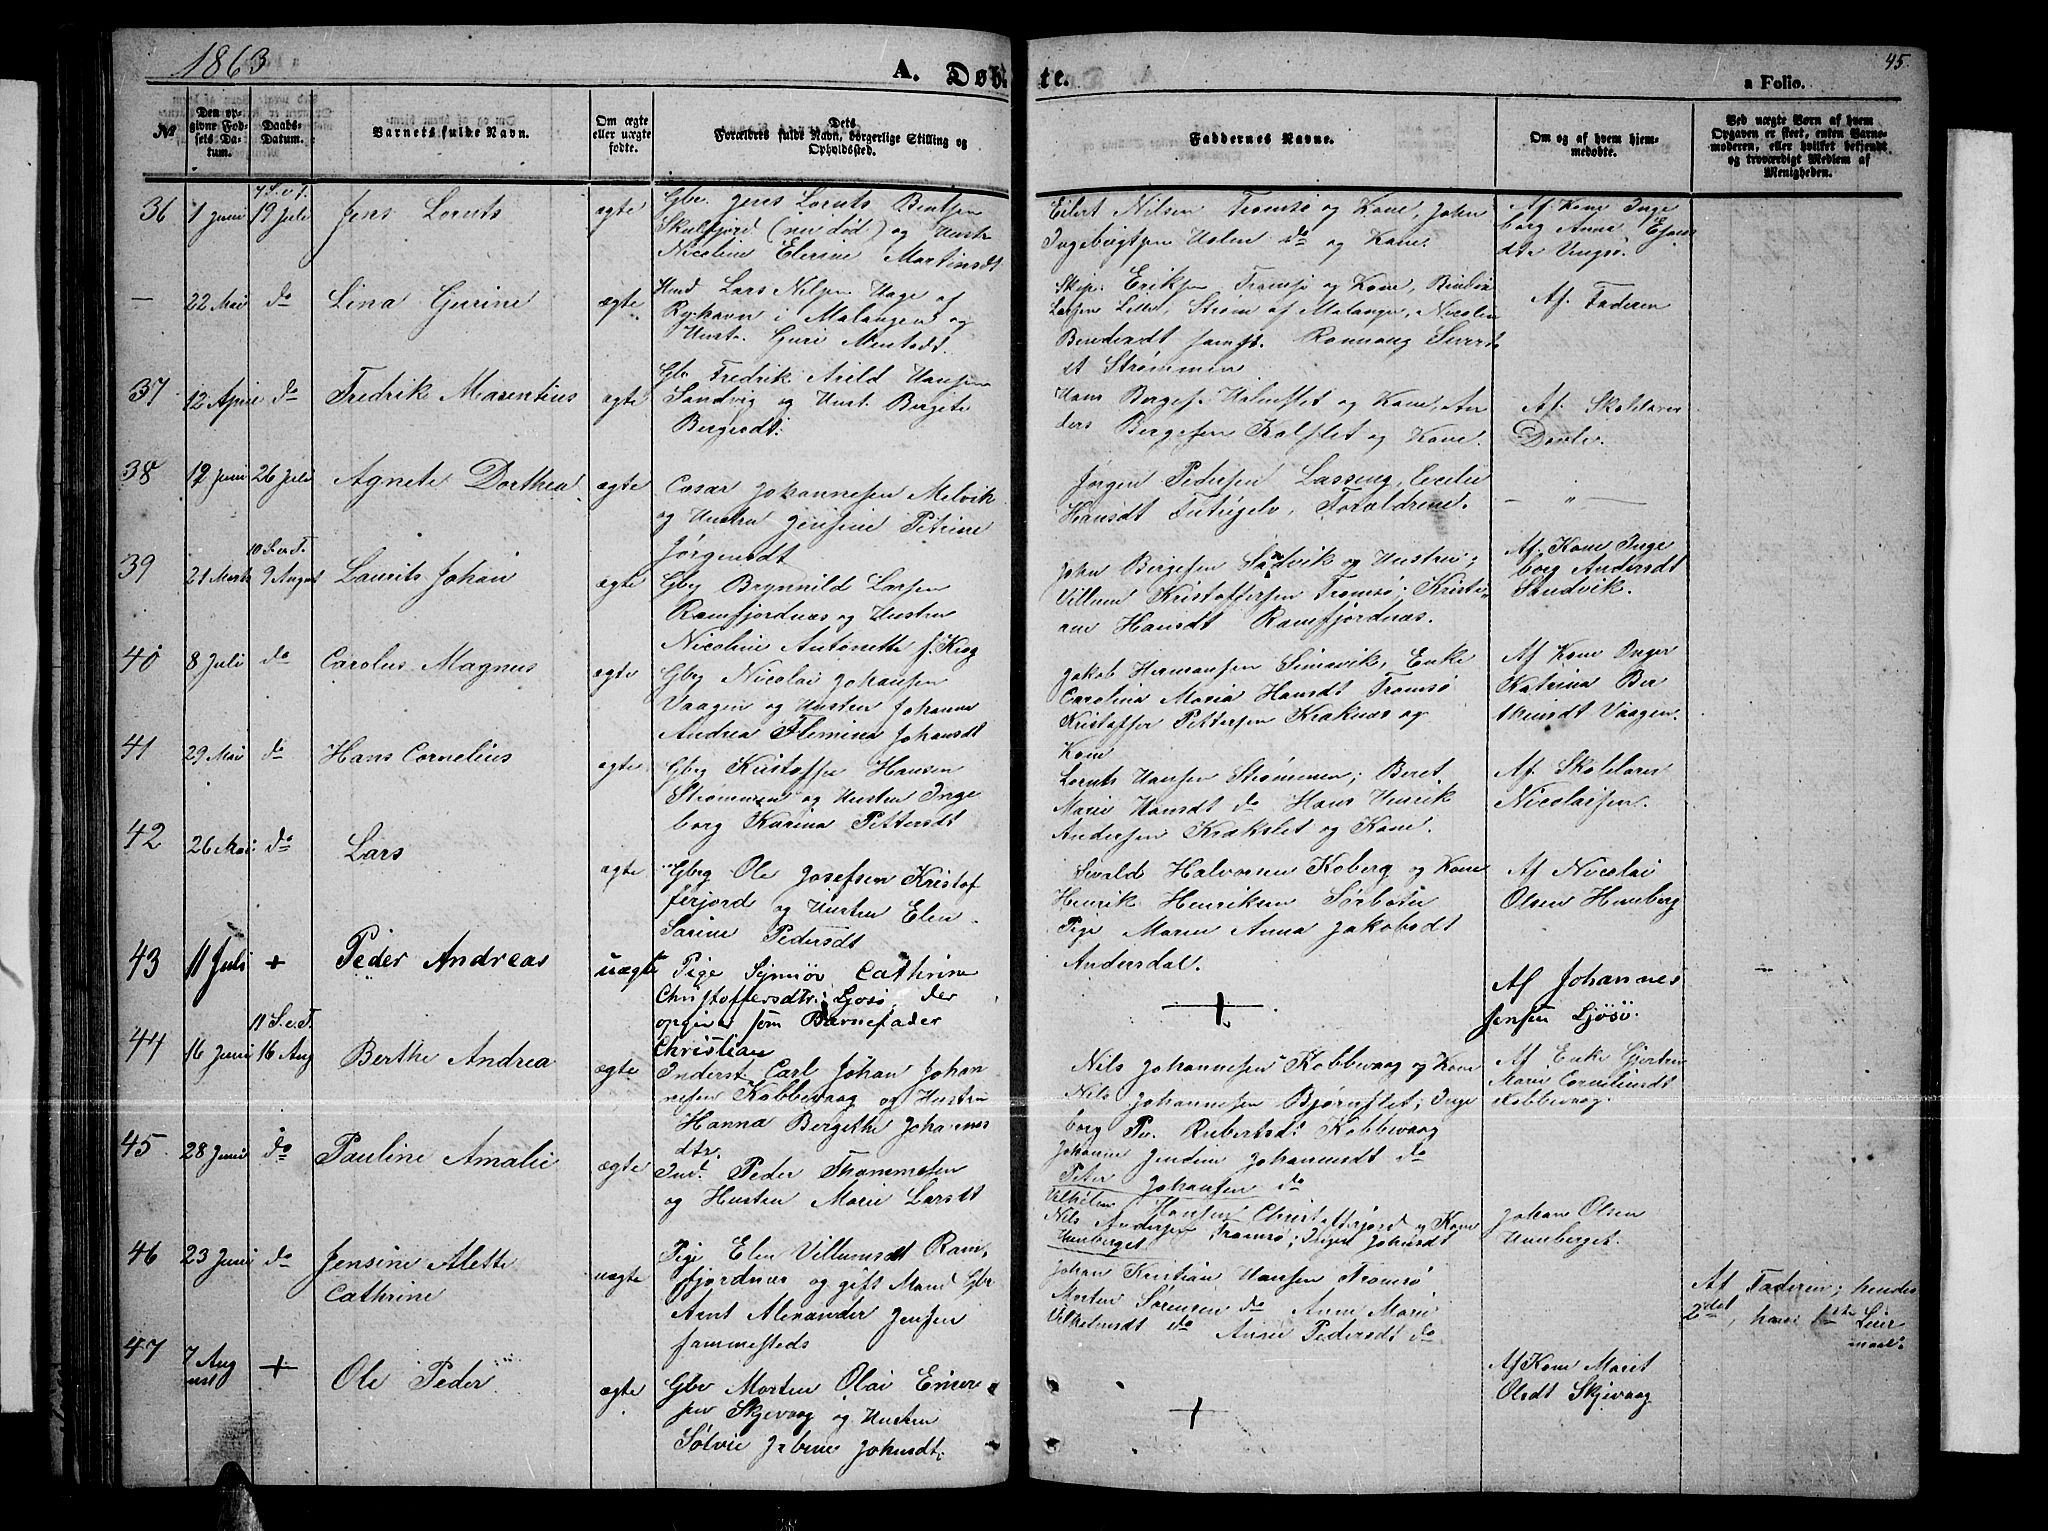 1863
A. Døbte.
45.
a Folio.
No
Den opgivne Fodsels Datum.
Daabs-Datum.
Barnets fulde Navn.
Om ægte eller uægte fodte.
Dets Forældres fulde Navn, borgerlige Stilling og Opholdssted.
Faddernes Navne.
Om og af hvem hjemmedobte.
Ved uægte Born af hvem Opgaven er skeet, enten Barnemoderen, eller hvilket bekjendt og troværdigt Medlem af Menigheden.
7 S. e. T.
36 1 Juni 19 Juli Jens Lornts ægte
Gbr. Jens Lornts Bentsen
Skulsfjord (nu død) og Hustr
Nicoline Elerine Martinsdt
Eilert Nilsen Tromsø og Kone, John
Ingebrigtsen Holen do og Kone
Af Kone Inge
borg Anna
dtr Vengsø.
— 22 Mai do Lina Gurine ægte
Lars Nilsen Hage af
Ryhavn i Malangen og
Hustr. Guri
Eriksen Tromsø og Kone,
Larsen Lille, Strøm af Malangen, Nicoline
Ronnaug Siverts
dt Strømmen
Af Faderen
37 12 April do Fredrik Marentius ægte
Gb Fredrik Arild Hansen
Sandvig og Hust. Bergete
Bergesdt.
Hans Berges. Holmslet og Kone, An
ders Bergesen Kalslet og Kone.
Af Skolelærer
Davles.
38 12 Juni 26 Juli Agnete Dorthea ægte
Cæsar Johannesen Melvik
og Hustru Jensine Petrine
Jørgensdt
Jørgen Pedersen Cecilie
Hansdt Futrigelv, Forældrene.
— " —
10 S. e. T.
39 21 Marts 9 August Laurits Johan ægte
Gbr Brynnild Larsen
Ramfjordnæs og Hustru
Nicoline Antonette f. Krog
John Bergesen Sandvik og Hustru;
Villum Kristoffersen Tromsø; Kristi-
ane Hansdt Ramfjordnæs.
Af Kone Inge
borg Andersdt
Sandvik.
40 8 Juli do Carolus Magnus ægte
Gbr Nicolai Johansen
Vaagen og Hustru Johanna
Andrea Flemina Johansdt
Jakob Hermansen Simavik, Enke
Carolina Maria Hansdt Tromsø
Kristoffer Pettersen Kraknæs og
Kone
Af Kone Inger
Katrina Ber
Vaagen.
41 29 Mai do Hans Cornelius ægte
Gbr Kristoffer Hansen
Strømmen og Hustru Inge
borg Karina Pettersdt
Lornts Hansen Strømmen; Beret
Marie Hansdt do Hans Henrik
Andersen Krakslet og Kone.
Af Skolelærer
Nicolaisen.
42 26 Mai do Lars ægte
Gbr Ole Josefsen Kristof
ferjord og Hustru Elen
Sarine Pedersdt
Sivald Halvorsen Koberg og Kone
Henrik Henriksen Sørbotn
Pige Maren Anna Jakobsdt
Andersdal.
Af Nicolai
Olsen Hunberg
43 11 Juli + Peder Andreas uægte
Pige Synnøv Cathrine
Christoffersdtr. Ljosø, der
opgiver som Barnefader
Christian
+
Af Johannes
Jensen Ljøsø.
11 S. e. T.
44 16 Juni 16 Aug Berthe Andrea ægte
Inderst. Carl Johan Johan
nesen Kobbevaag og Hustru
Hanna Bergethe Johannes
dtr.
Nils Johannesen Kobbevaag og Kone
Nils Johannesen Bjørnslet; Inge
borg Pe. Rubertsdt Kobbevaag
Johanne Johannesdt do
Peter Johansen do
Af Enke Gjertru
Marie Corneliusdt
Kobbevaag.
45 28 Juni do Pauline Amalie ægte
Ind. Peder Thommesen
og Hustru Marie Larsdt
Vilhelm Hansen Christofferjord og Kone
Nils Andersen Tromsø; Inger Johnsdt
Hunberget.
Johan Olsen
Hunberget.
46 23 Juni do Jensine Alette
Cathrine uægte
Pige Elen Villumsdt Ram-
fjordnæs og gift Mand Gbr
Arnt Alexander Jensen
sammesteds
Johan Kristian Hansen Tromsø
Morten Sørensen do Anne Marie
Vilhelmsdt do Anne Pedersdt do
Af Faderen; hendes
2det, hans 1ste Leier
maal.
47 7 Aug
ust + Ole Peder ægte
Gbr Morten Olai Einer
sen Skjevaag og Hustru
Sølvie Jakobine Johnsdt.
+
Af Kone Marit
Olsdt Skjevaag